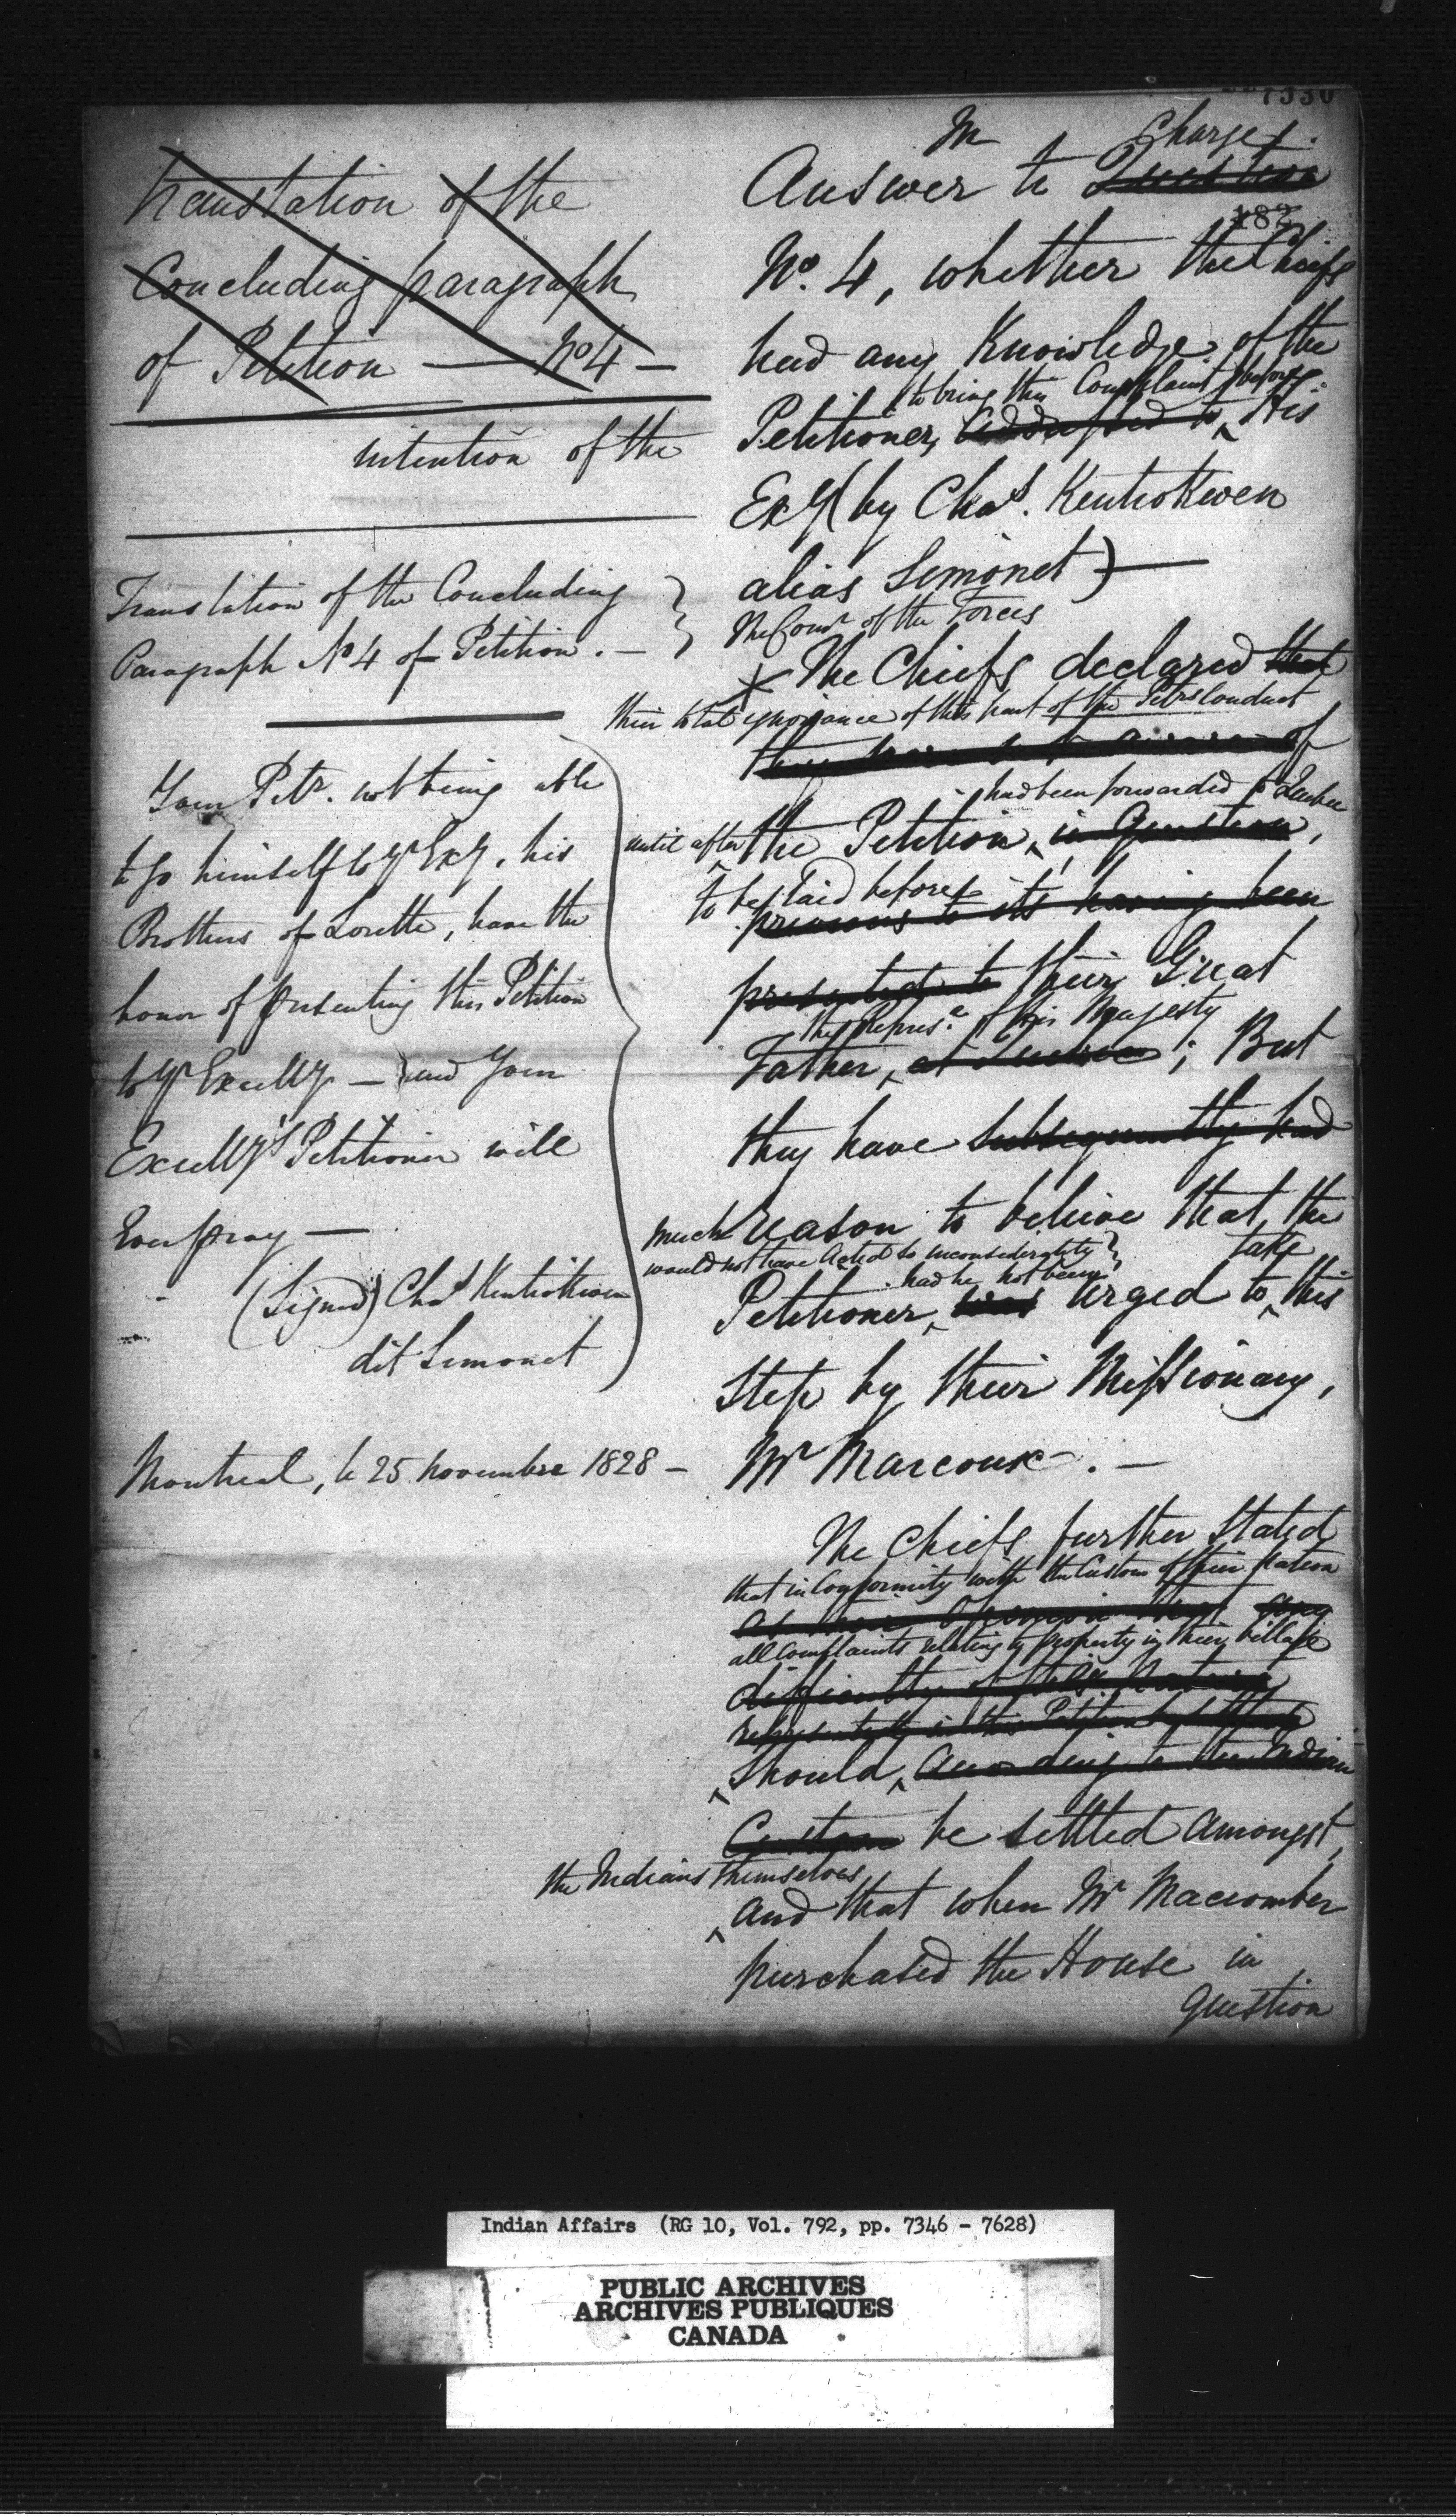 7330
Translation of the
Concluding paragraph
of Petition — No 4 —
intention of the
Translation of the Concluding
Paragraph No 4 of Petition. —
Your Petr. not being able
to go himself to Yr Exy, his
Brothers of Lorette, have the
honor of presenting this Petition
to Yr Excelly — and Your
Excelly's Petitioner will
Ever pray —
(Signed) Chas Kentiokwen
dit Simonet
Montreal, le 25 novembre 1828 —
In Charge
Answer to Question
182
No. 4, whether the Chiefs
had any Knowledge of the
to bring this Complaint before
Petitioner, addressed to His
Exy (by Chas. Kentiokwen
alias Simonet) —
The Comr of the Forces
The Chiefs declared that
their total ignorance of this part of the Petrs Conduct
they were not aware of
had been forwarded to Quebec
until after the Petition, in Question,
to be laid before
previous to its having been
presented to their Great
the Represe of His Majesty
Father, at Quebec; But
they have subsequently had
much reason to believe that the
would not have acted so inconsiderately
had he not been take
Petitioner, was urged to this
Step by their Missionary,
Mr Marcoux. —
The Chiefs further Stated
that in Conformity with the Custom of their Nation
any
all complaints relating to property in their Village
difficulty of this nature
represented in this Petition
Should, according to the Indian
Custom be settled amongst,
the Indians themselves
and that when Mr Macomber
purchased the House in
Question
Indian Affairs (RG 10, Vol. 792, pp. 7346 - 7628)
PUBLIC ARCHIVES
ARCHIVES PUBLIQUES
CANADA